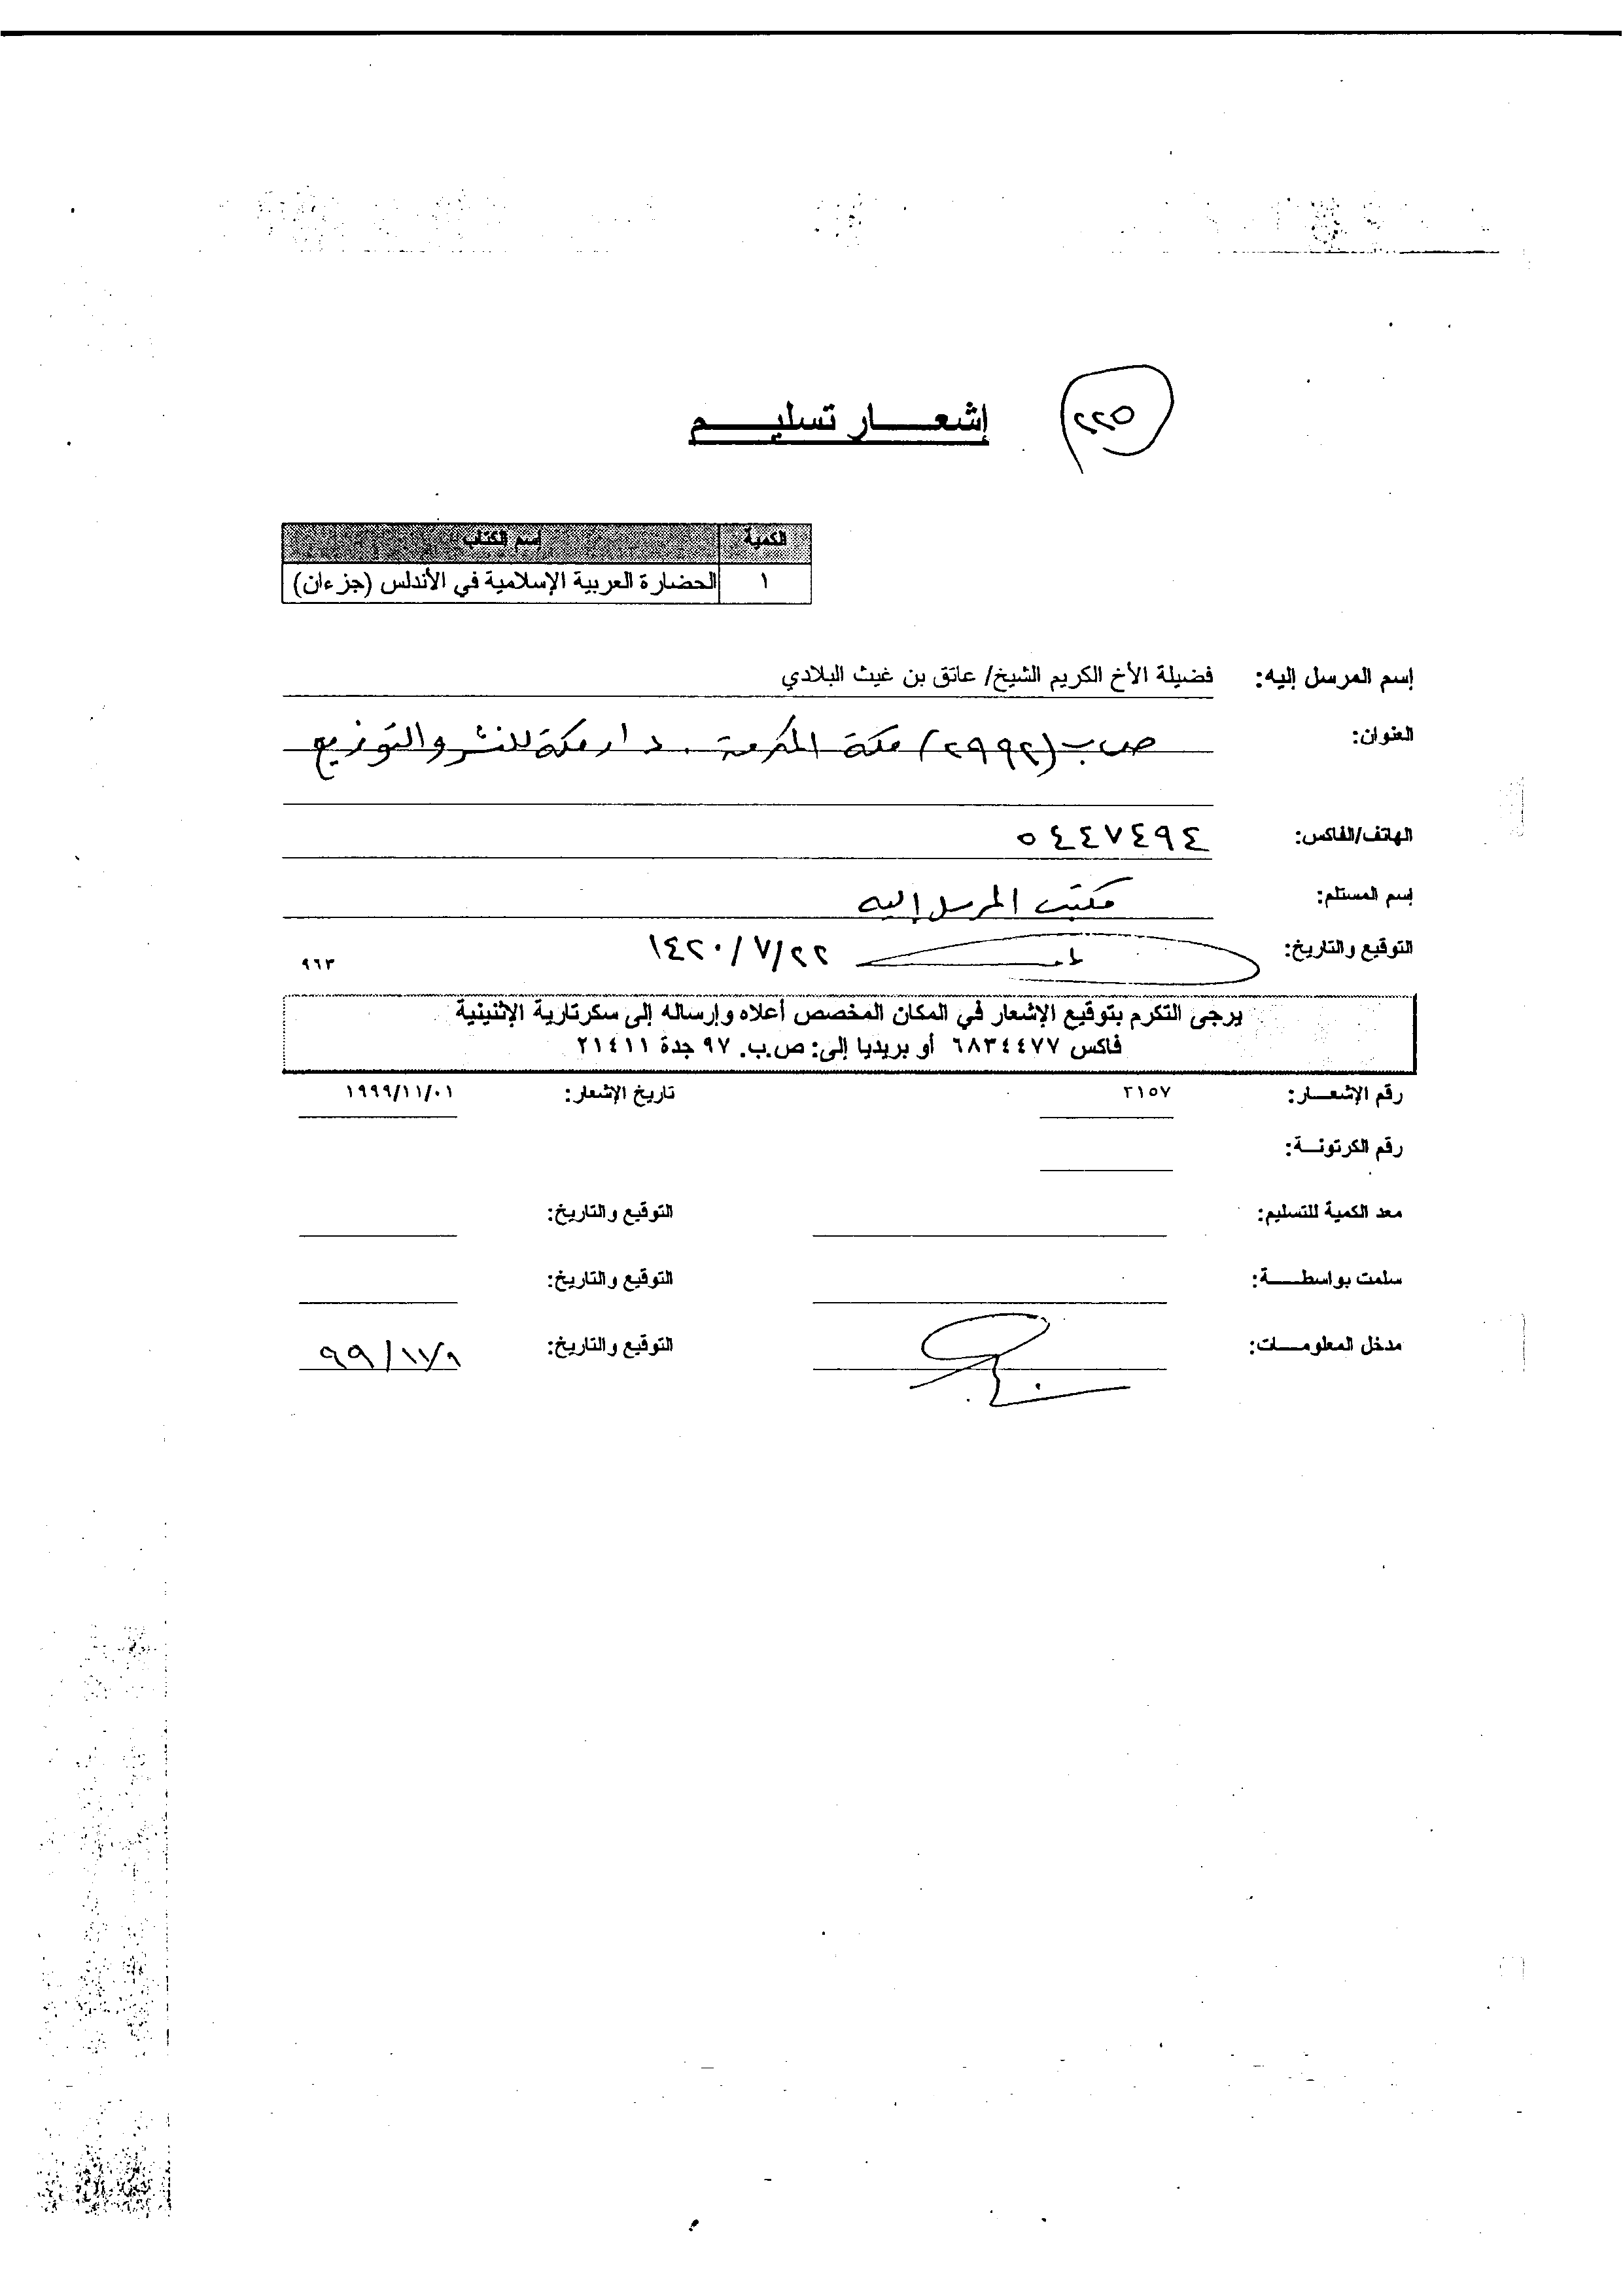 ٢٢٥
إشعـــار تسليـــم
الكمية إسم الكتاب
١ الحضارة العربية الإسلامية في الأندلس (جزءان)
إسم المرسل إليه: فضيلة الأخ الكريم الشيخ/ عاتق بن غيث البلادي
العنوان: ص ب (٢٩٩٢) مكة المكرمة . دار مكة للنشر والتوزيع
الهاتف/الفاكس: ٥٤٤٧٤٩٤
إسم المستلم: مكتب المرسل إليه
التوقيع والتاريخ: ١٤٢٠/٧/٢٢ ٩٦٣
يرجى التكرم بتوقيع الإشعار في المكان المخصص أعلاه وإرساله إلى سكرتارية الإثنينية
فاكس ٦٨٣٤٤٧٧ أو بريديا إلى: ص.ب. ٩٧ جدة ٢١٤١١
رقم الإشعـــار: ٢١٥٧ تاريخ الإشعار: ١٩٩٩/١١/٠١
رقم الكرتونـــة:
معد الكمية للتسليم: التوقيع والتاريخ:
سلمت بواسطـــة: التوقيع والتاريخ:
مدخل المعلومـــات: التوقيع والتاريخ: ٩٩/١١/٩